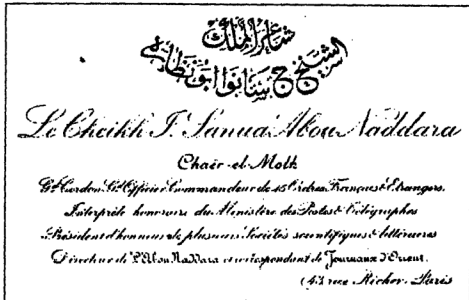 شاعر الملك
الشيخ ج سانوا ابو نظارة
Le Cheikh J. Sanua Abou Naddara
Chaër-el-Molk
Gd Cordon, Gd Officier, Commandeur de 45 Ordres Français & Etrangers.
Interprète honoraire du Ministère des Postes & Télégraphes
Président d'honneur de plusieurs Sociétés scientifiques & littéraires
Directeur de l'Abou Naddara et correspondant de Journaux d'Orient.
43 rue Richer. Paris